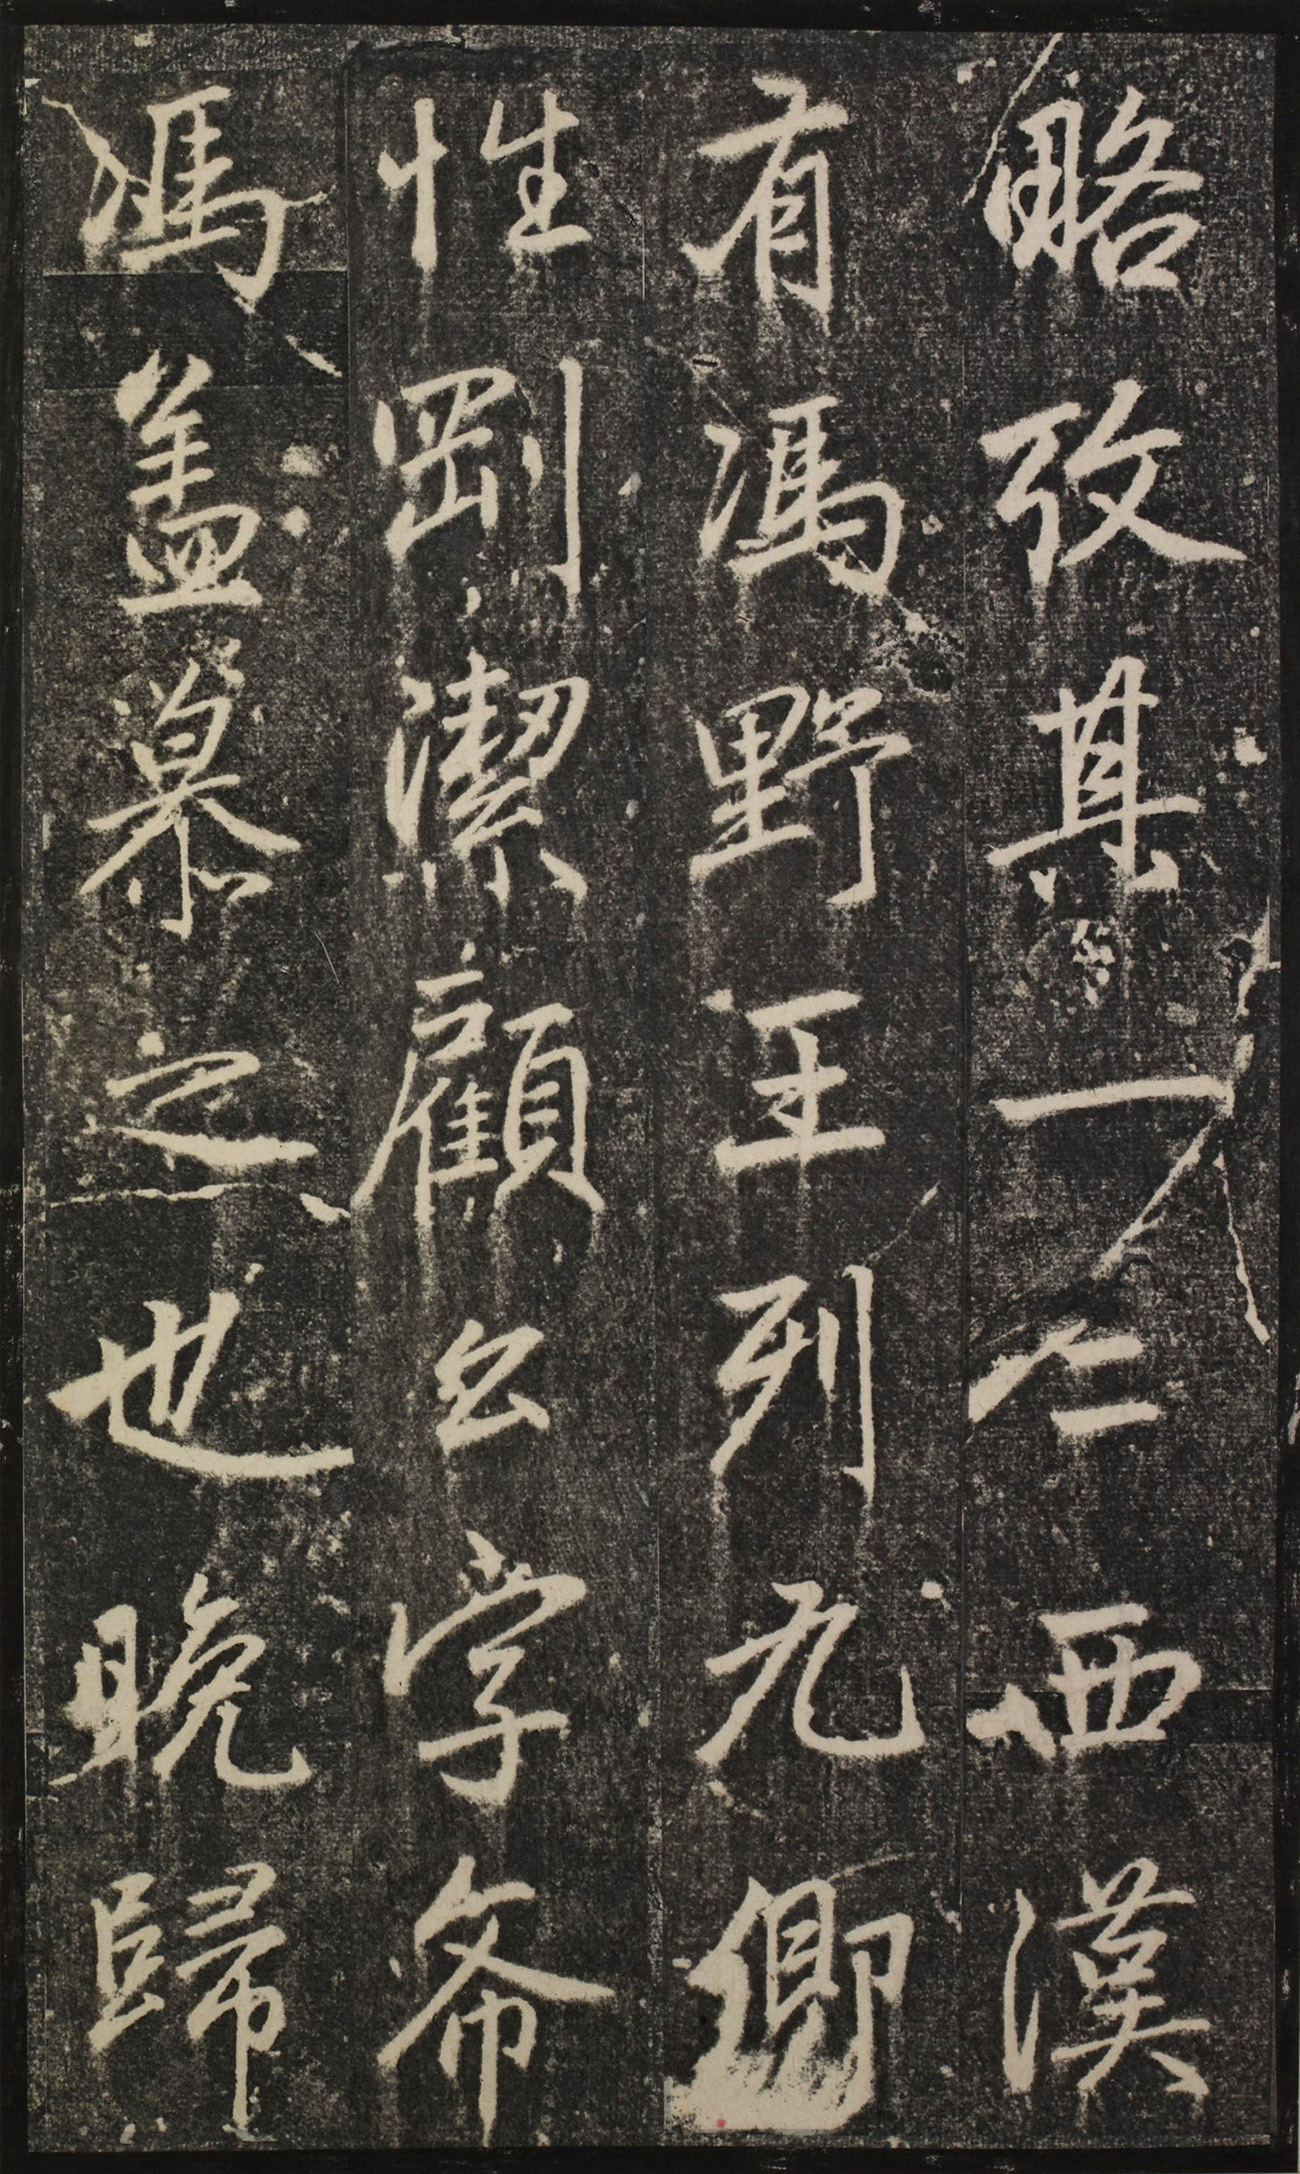 略攷其一二西漢
有馮野王列九卿
性剛潔顧公字希
馮蓋慕之也晚歸